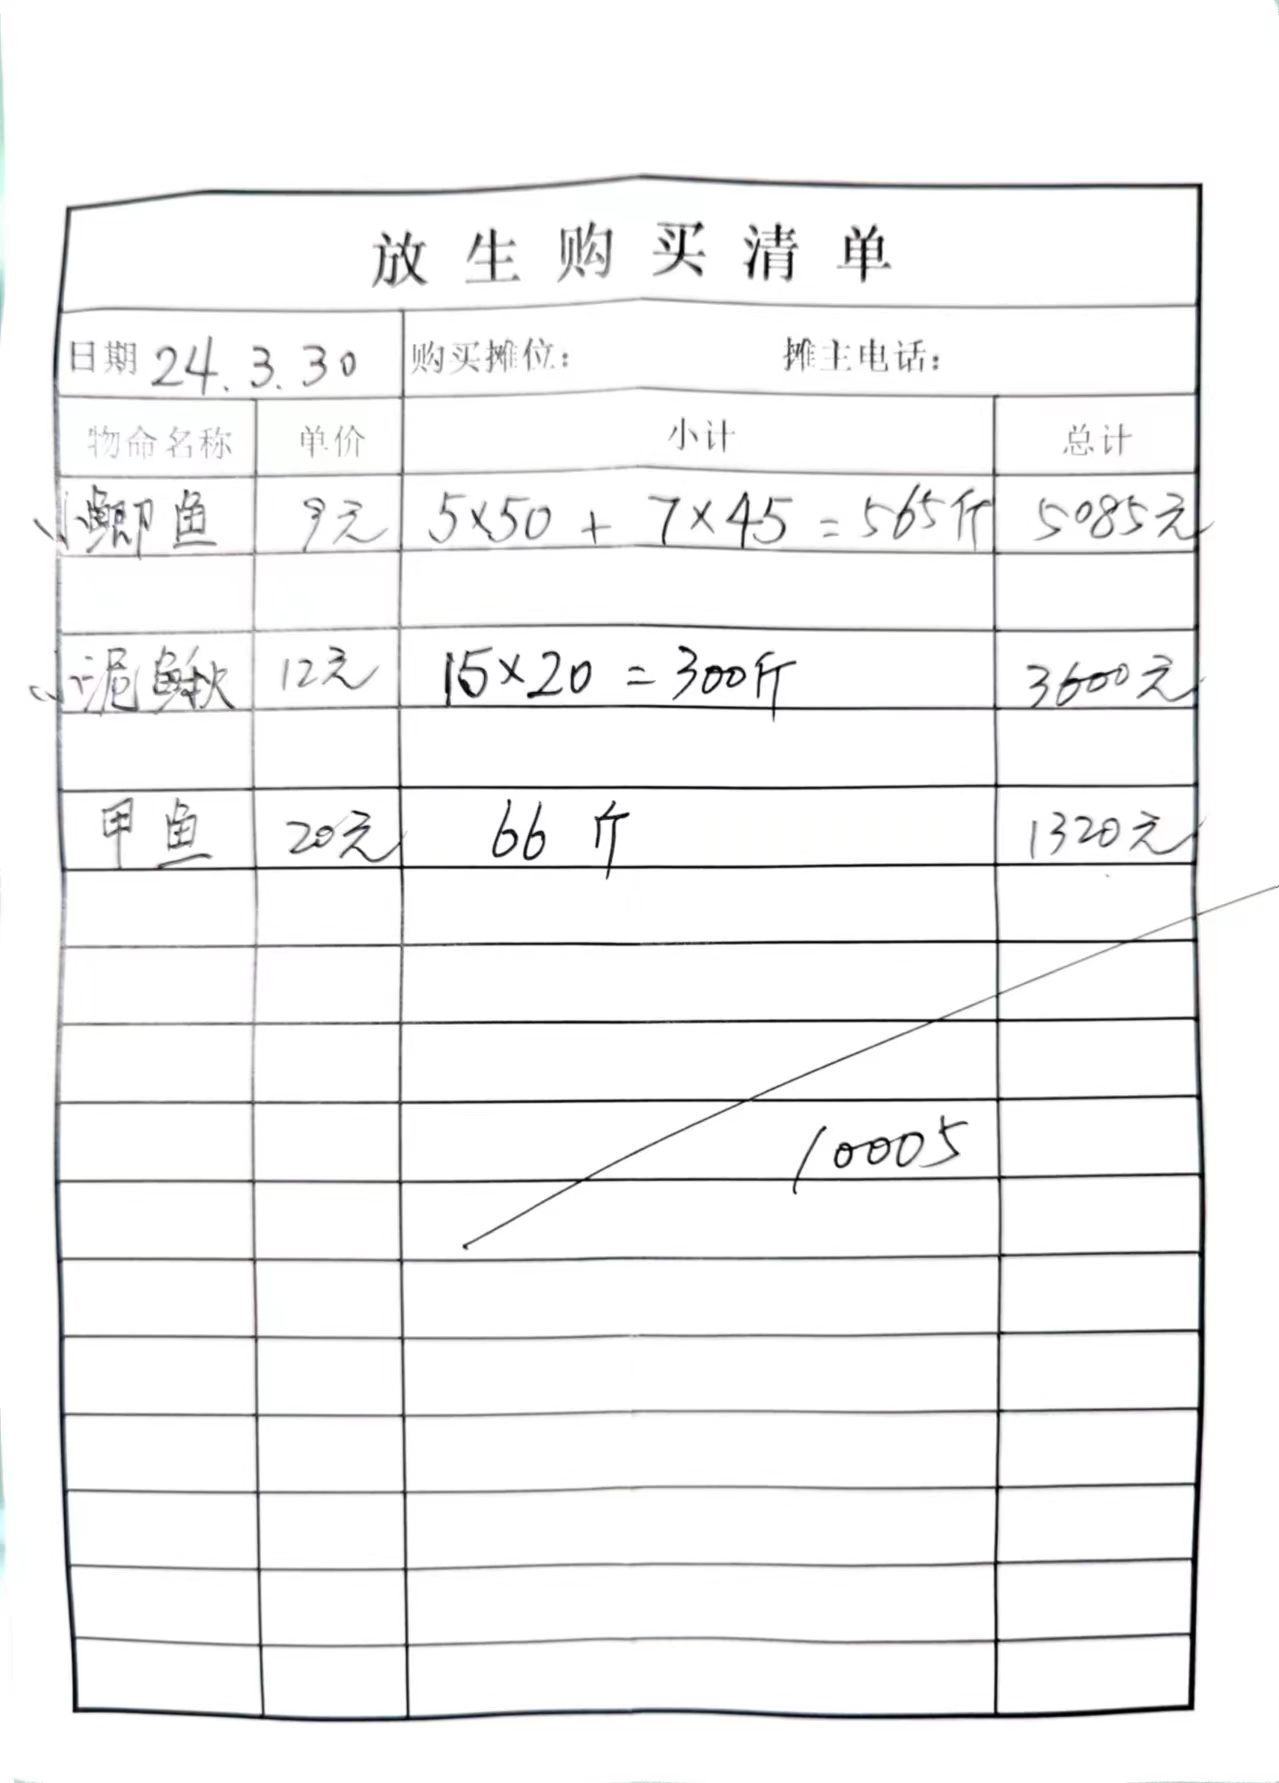 放生购买清单
日期 24.3.30 购买摊位： 摊主电话：
物命名称 单价 小计 总计
小鲫鱼 9元 5×50 + 7×45 = 565斤 5085元
小泥鳅 12元 15×20 = 300斤 3600元
甲鱼 20元 66斤 1320元
10005